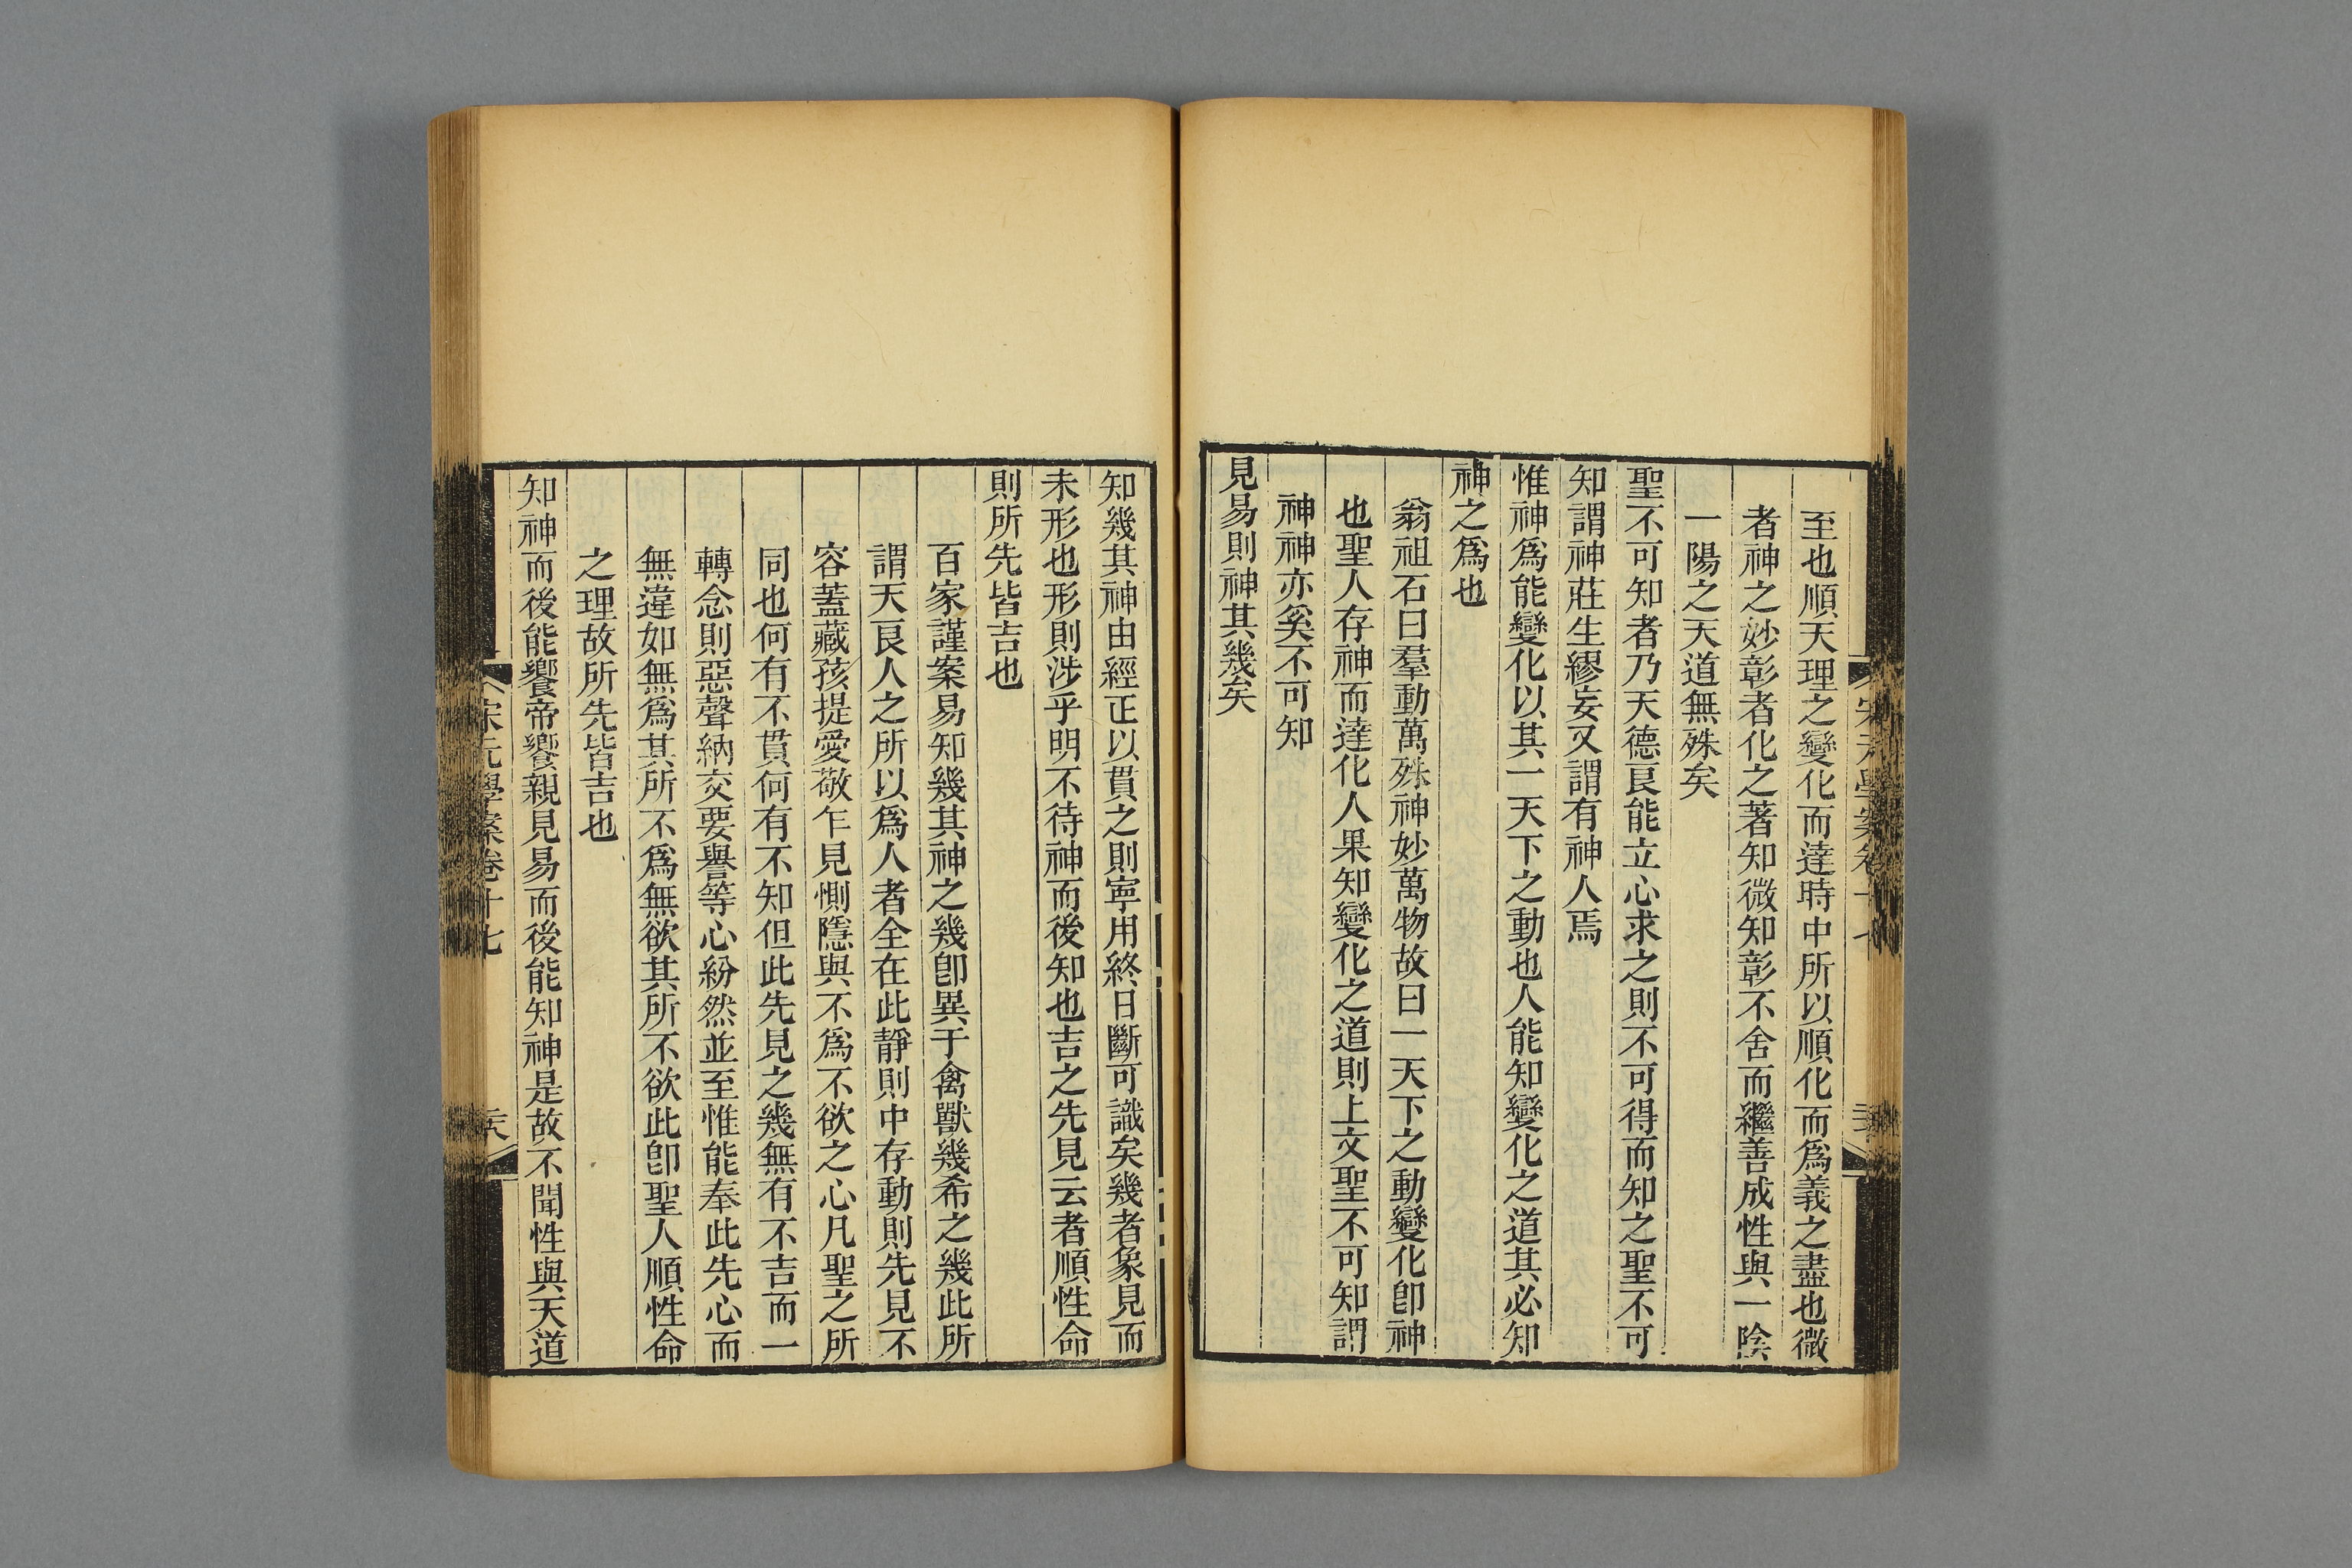 至也順天理之變化而達時中所以順化而爲義之盡也微
者神之妙彰者化之著知微知彰不舍而繼善成性與一陰
一陽之天道無殊矣
聖不可知者乃天德良能立心求之則不可得而知之聖不可
知謂神莊生繆妄又謂有神人焉
惟神爲能變化以其一天下之動也人能知變化之道其必知
神之爲也
翁祖石曰羣動萬殊神妙萬物故曰一天下之動變化卽神
也聖人存神而達化人果知變化之道則上文聖不可知謂
神神亦奚不可知
見易則神其幾矣
知幾其神由經正以貫之則寧用終日斷可識矣幾者象見而
未形也形則涉乎明不待神而後知也吉之先見云者順性命
則所先皆吉也
百家謹案易知幾其神之幾卽異于禽獸幾希之幾此所
謂天良人之所以爲人者全在此靜則中存動則先見不
容蓋藏孩提愛敬乍見惻隱與不爲不欲之心凡聖之所
同也何有不貫何有不知但此先見之幾無有不吉而一
轉念則惡聲納交要譽等心紛然並至惟能奉此先心而
無違如無爲其所不爲無欲其所不欲此卽聖人順性命
之理故所先皆吉也
知神而後能饗帝饗親見易而後能知神是故不聞性與天道
宋元學案卷十七